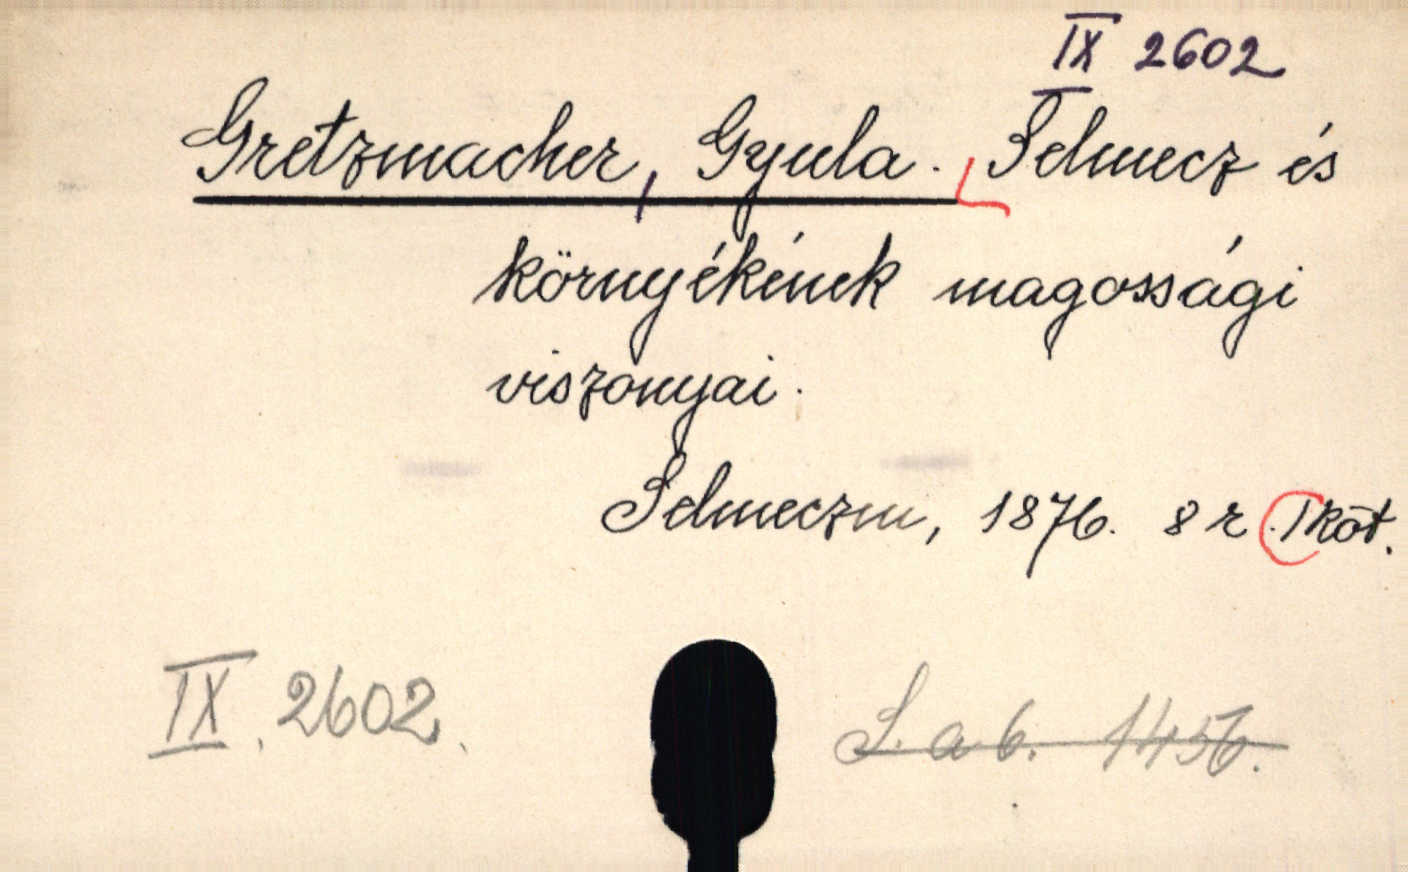 IX 2602
Gretzmacher, Gyula. Selmecz és
környékének magossági
viszonyai.
Selmeczen, 1876. 8 r. 1 köt.
IX. 2602.
S. a 6. 1456.